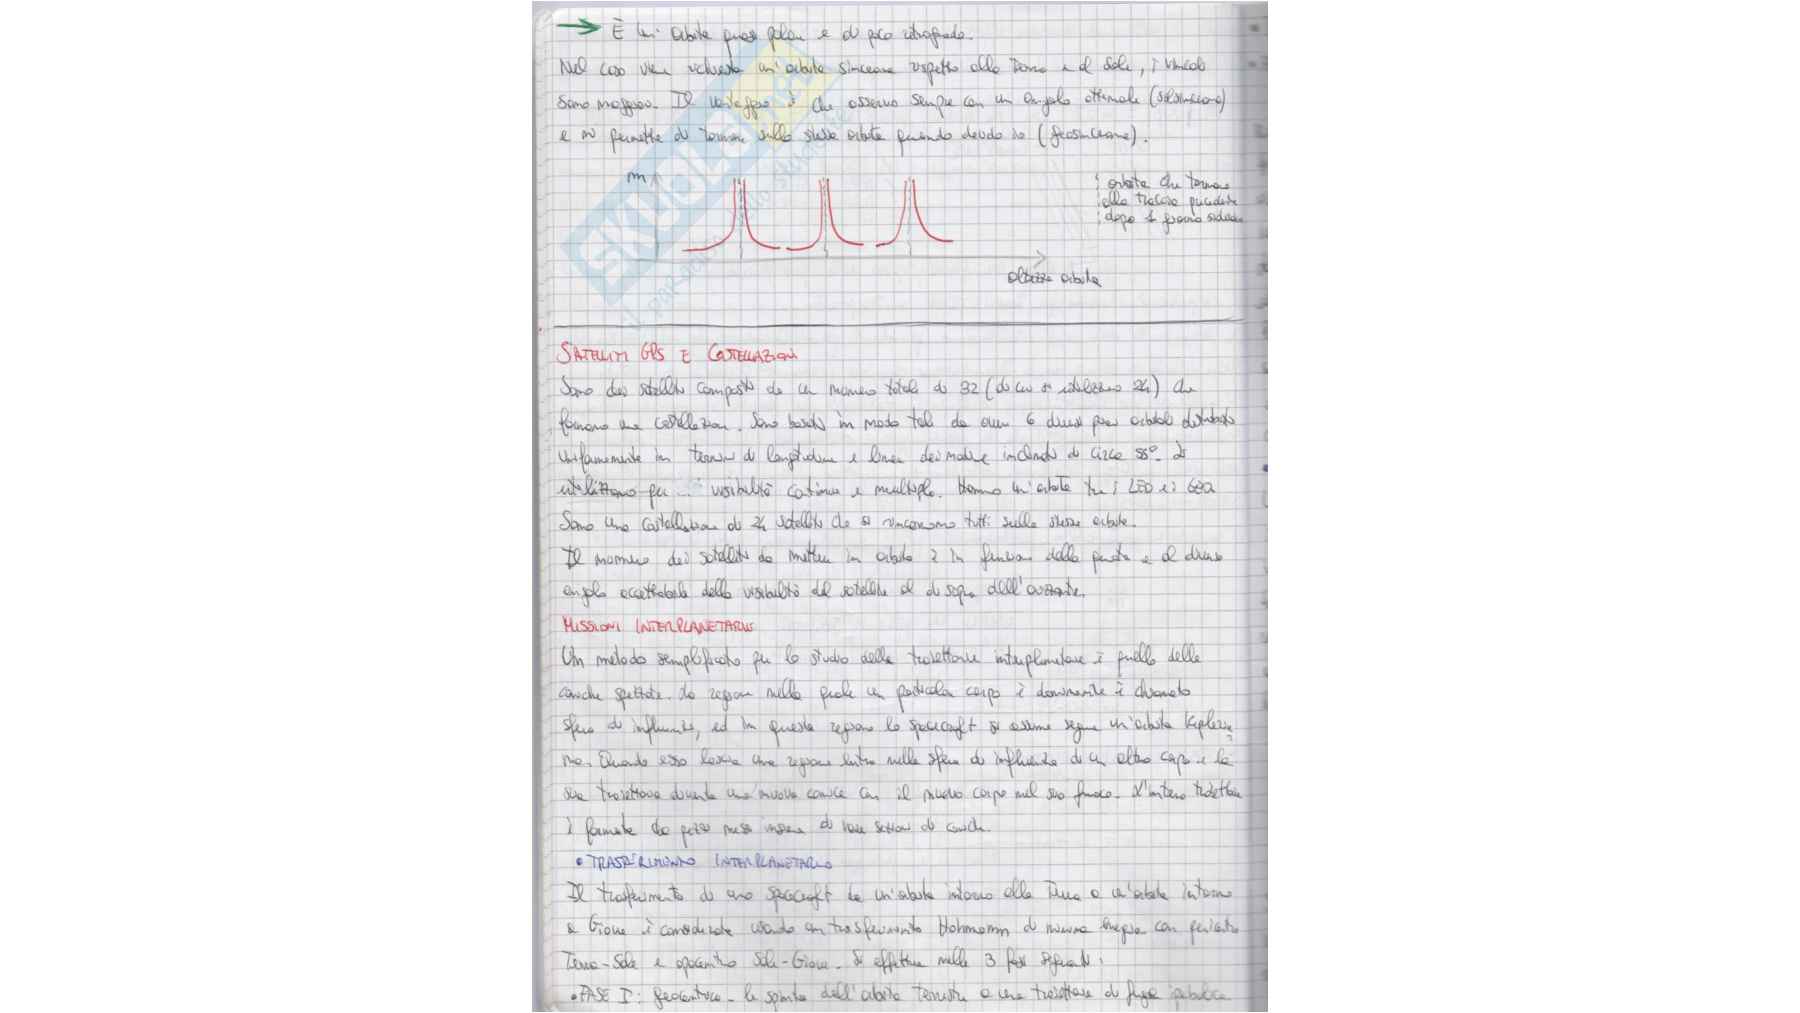 È un' orbita quasi polare e di poco retrograda.
Nel caso viene richiesta un'orbita sincrona rispetto alla Terra e al Sole, i vincoli
sono maggiori. Il vantaggio è che osservo sempre con un angolo ottimale (solsincrona)
e mi permette di tornare sulla stessa orbita quando decido io (geosincrona).
m
orbita che tornano
alla traccia precedente
dopo 1 giorno siderale
altezza orbita
SATELLITI GPS E COSTELLAZIONI
Sono dei satelliti composti da un numero totale di 32 (di cui si utilizzano 24) che
formano una costellazione. Sono basati in modo tale da avere 6 diversi piani orbitali distribuiti
uniformemente in termini di longitudine e linea dei nodi e inclinati di circa 55°. Si
utilizzano per ... visibilità continua e multipla. Hanno un'orbita tra i LEO e i GEO
Sono una costellazione di 24 satelliti che si rincorrono tutti sulla stessa orbita.
Il numero dei satelliti da mettere in orbita è in funzione della quota e al
angolo accettabile della visibilità del satellite al di sopra dell'orizzonte.
MISSIONI INTERPLANETARIE
Un metodo semplificato per lo studio delle traiettorie interplanetarie è quello delle
coniche spezzate. La regione nella quale un particolare corpo è dominante è chiamata
sfera di influenza, ed in questa regione lo spacecraft si assume segua un'orbita Kepleria
na. Quando esso lascia una regione entra nella sfera di influenza di un altro corpo e la
sua traiettoria diventa una nuova conica con il nuovo corpo nel suo fuoco. L'intera traiettoria
è formata da pezzi messi insieme di varie sezioni di coniche.
• TRASFERIMENTO INTERPLANETARIO
Il trasferimento di uno spacecraft da un'orbita intorno alla Terra a un'orbita intorno
a Giove è considerato usando un trasferimento Hohmann di minima energia con pericentro
Terra-Sole e apocentro Sole-Giove. Si effettua nelle 3 fasi seguenti:
• FASE I: geocentrica - la spinta dall'orbita terrestre a una traiettoria di fuga iperbolica